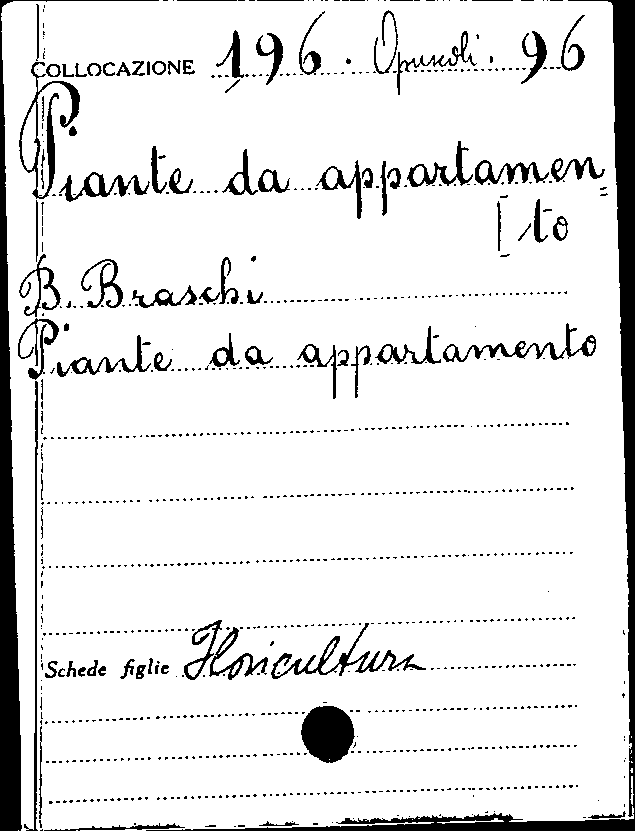 COLLOCAZIONE 196. Opuscoli. 96
Piante da appartamen=
[to
B. Braschi
Piante da appartamento
Schede figlie Floricultura